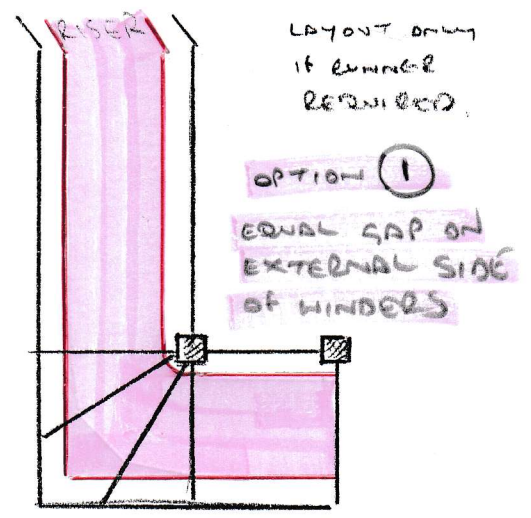 RISER
LAYOUT ONLY
IF RUNNER
REQUIRED.
OPTION 1
EQUAL GAP ON
EXTERNAL SIDE
OF WINDERS